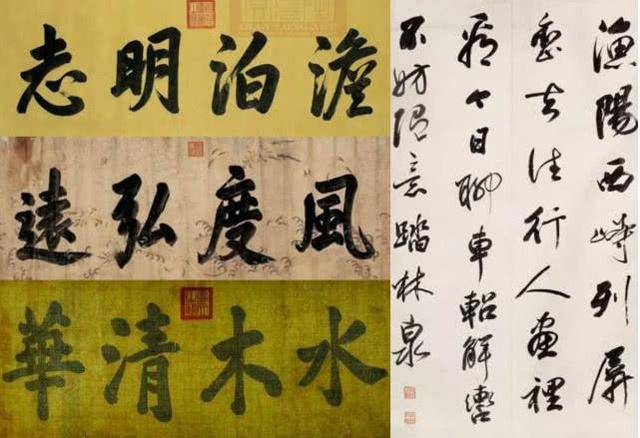 澹泊明志
風度弘遠
水木清華
漁陽西峙列屏
巒去往行人畫裡
看今日聊車軺解轡
不妨隨意踏林泉